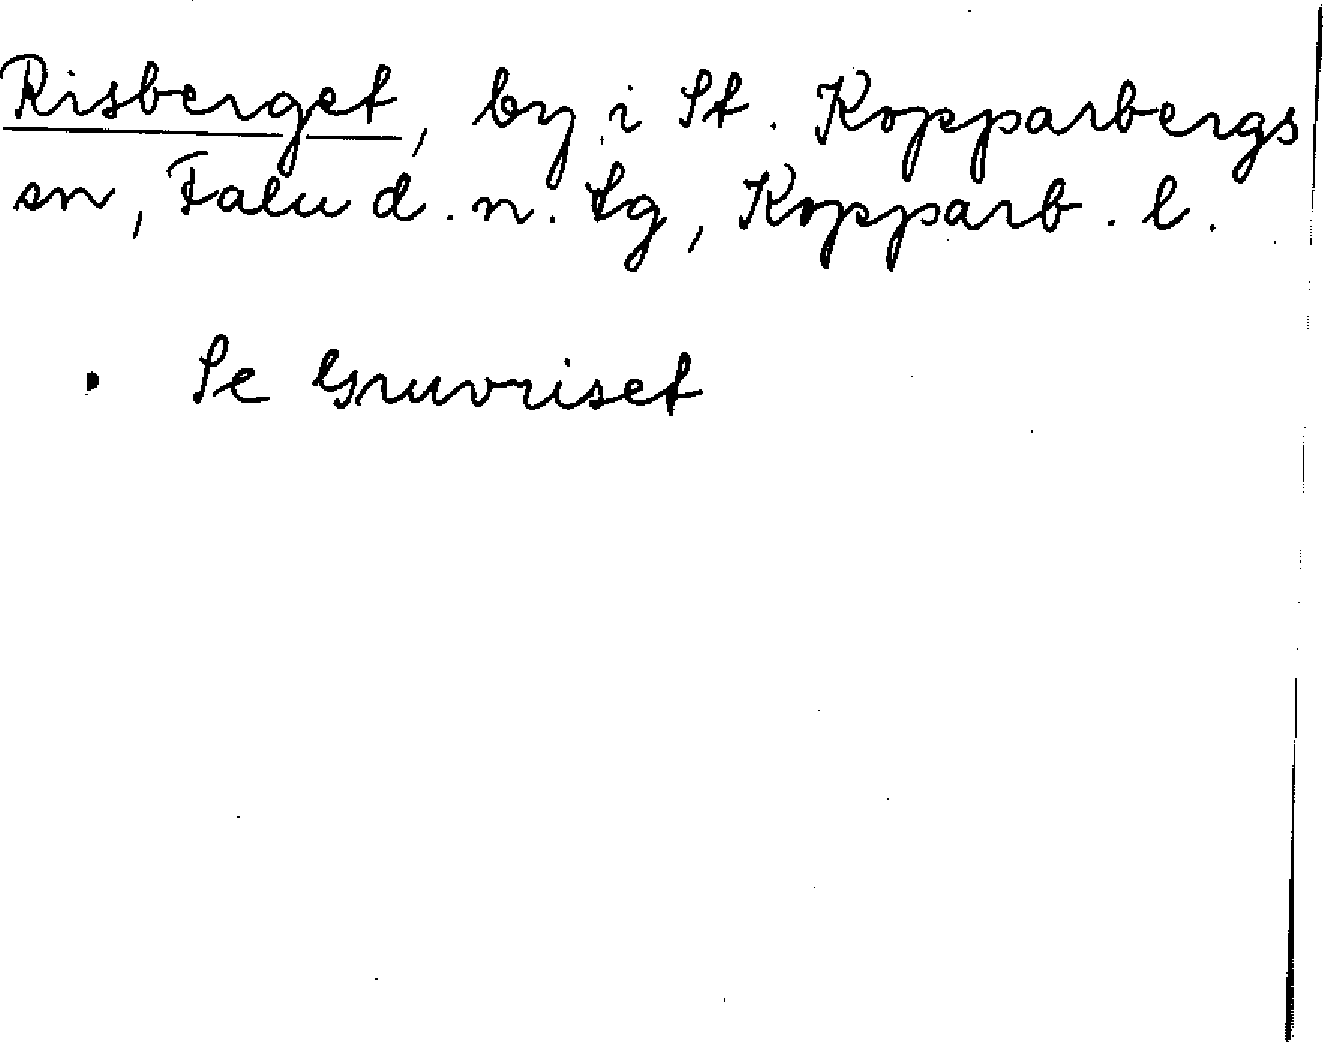 Risberget, by i St. Kopparbergs
sn, Falu d. n. tg, Kopparb. l.
Se Gruvriset